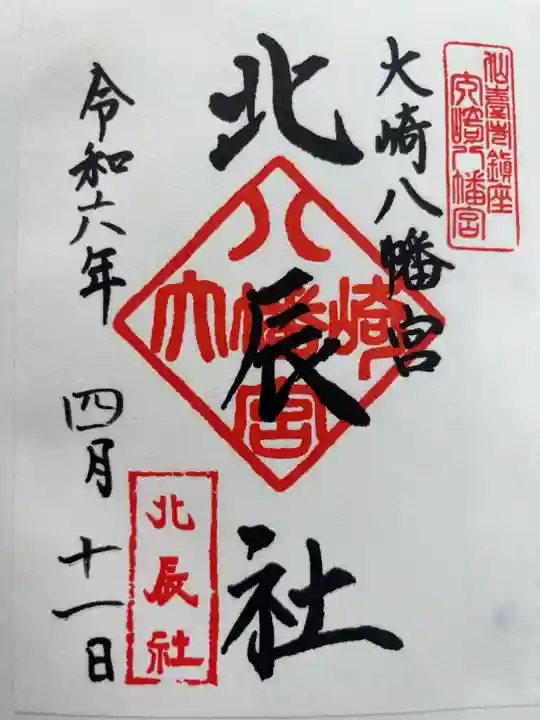 仙臺市鎮座
大崎八幡宮
大崎八幡宮
北辰社
八
大幡崎
宮
令和六年
四月十一日
北辰社